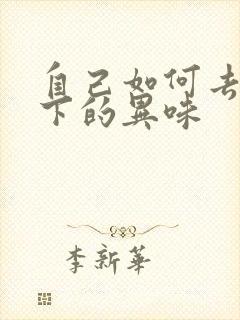 自己如何去
下的異味
李新華